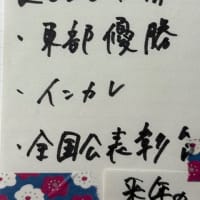 ・東部優勝
・インカレ
・全国公表彰台
来年の